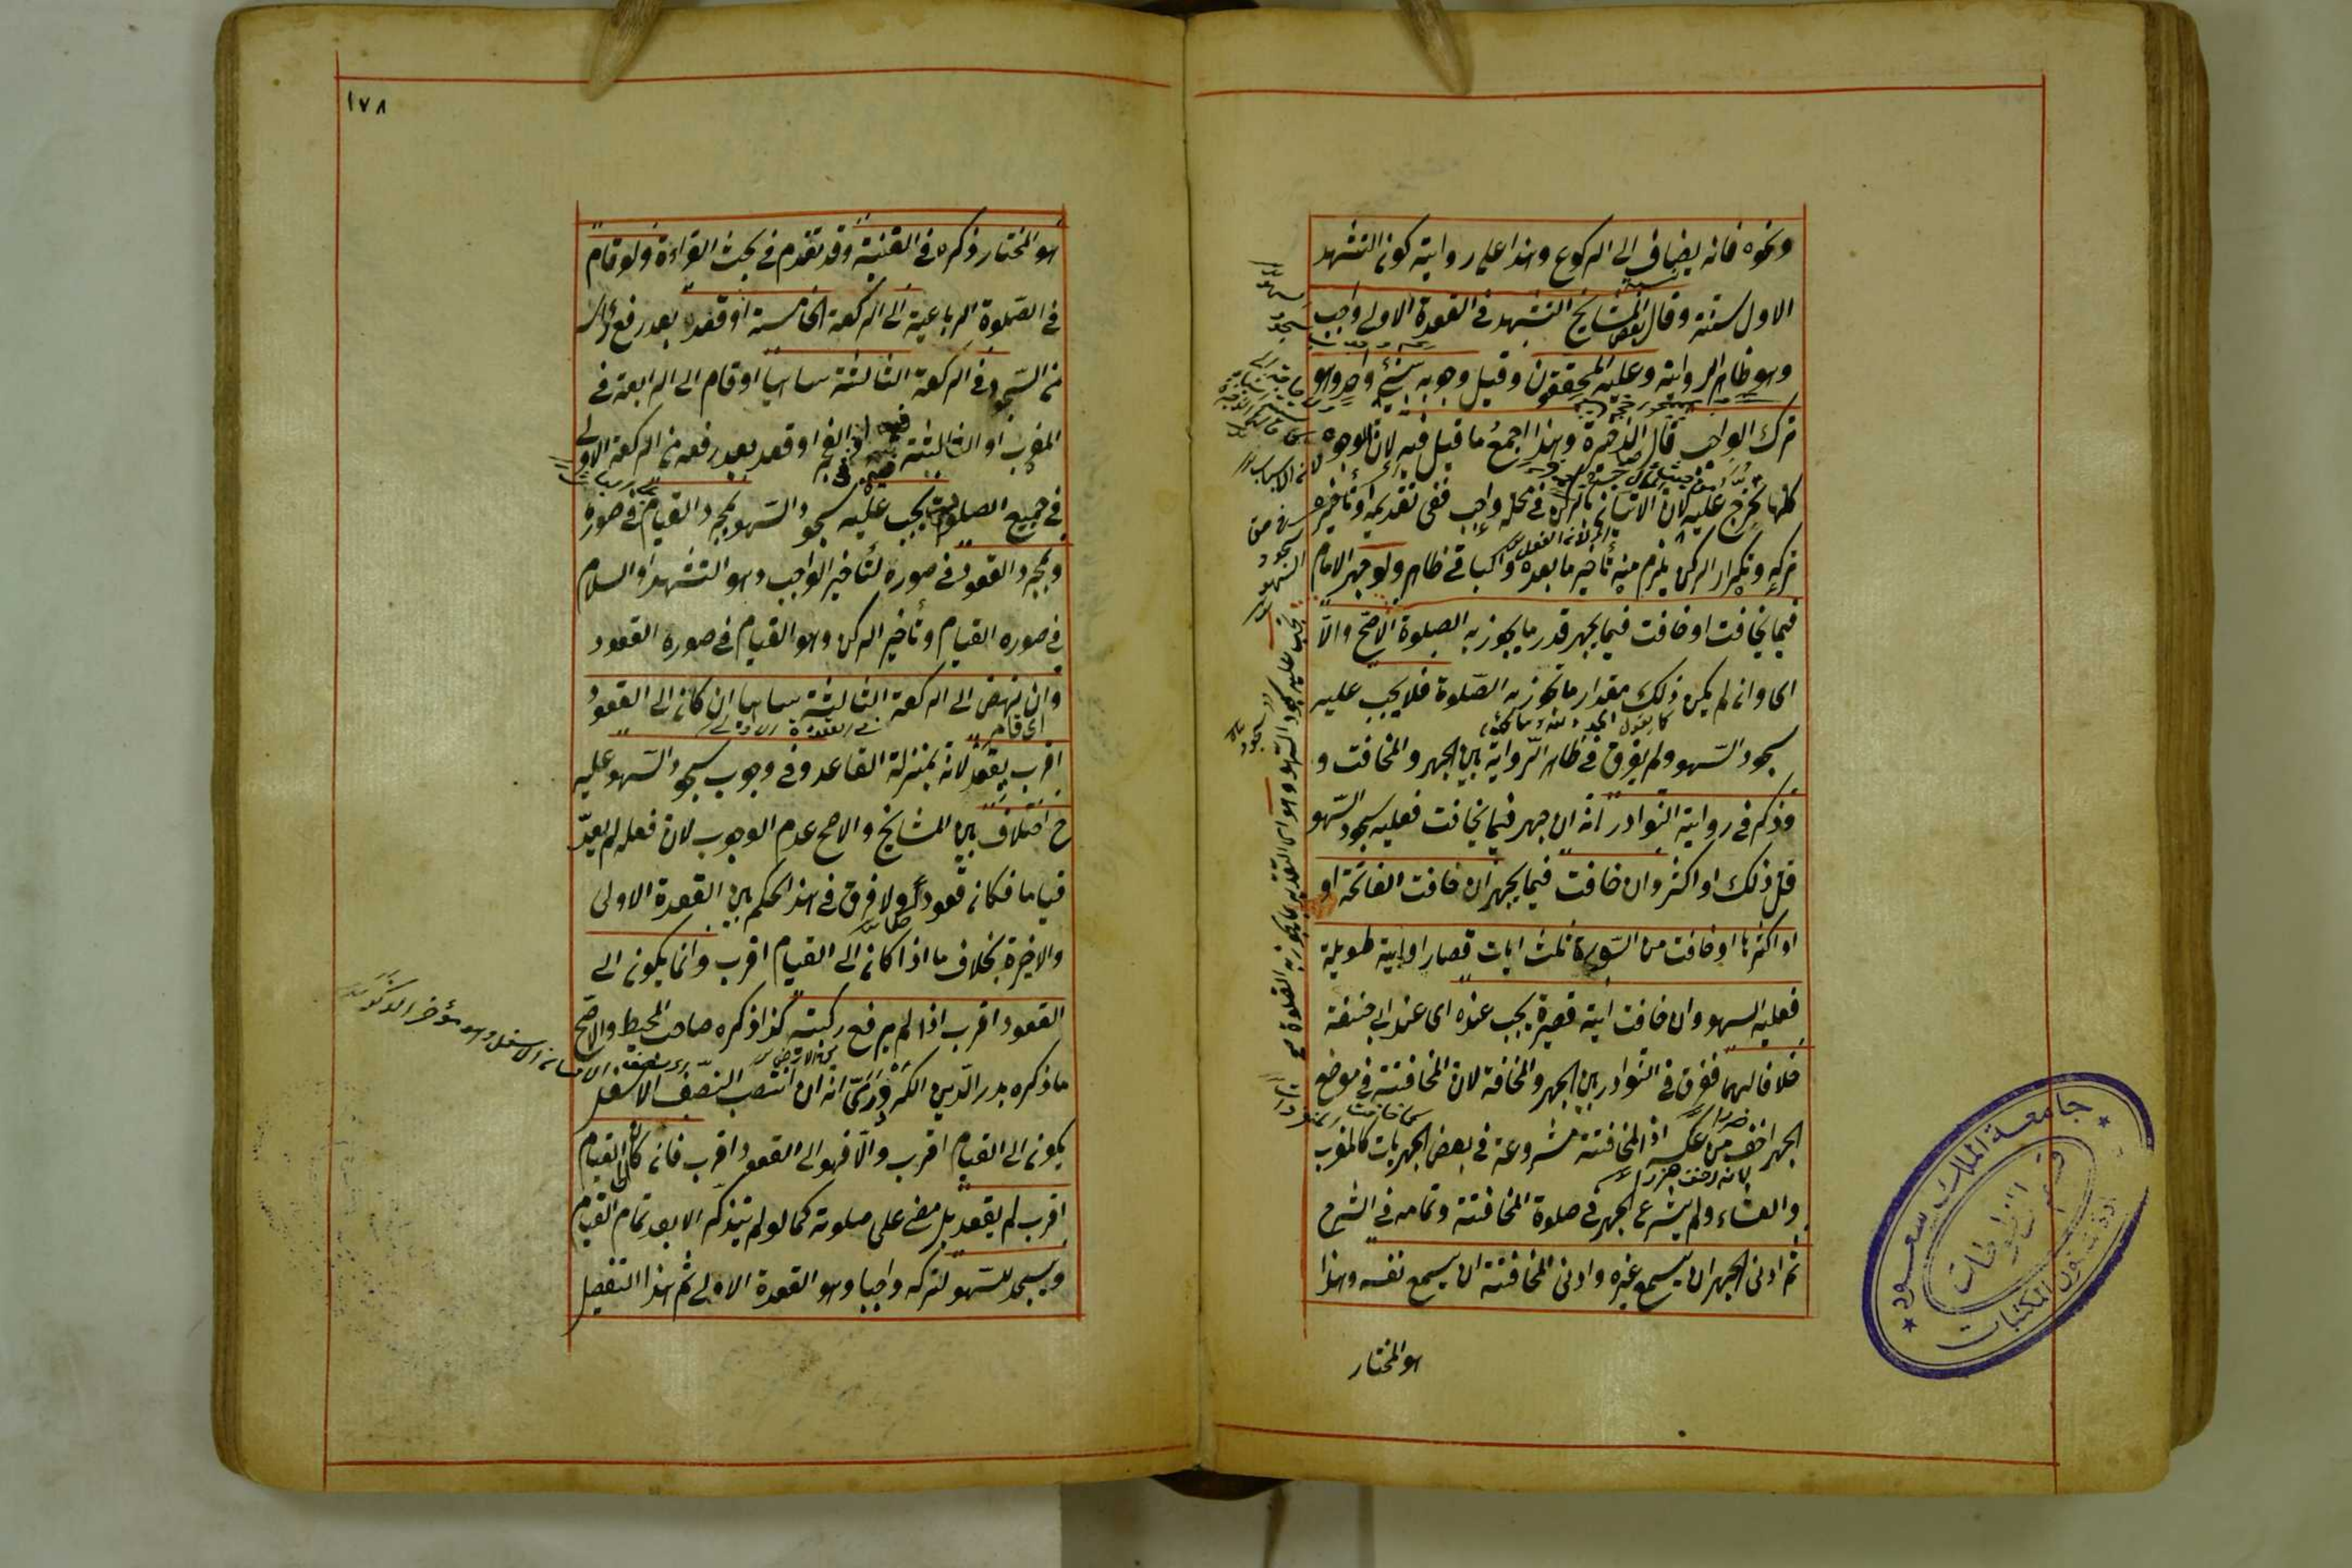 ونحوه فانه يضاف الى الركوع وهذا على رواية كون التشهد
الاول سنة وقال بعض المشايخ التشهد في القعدة الاولى واجب
وهو ظاهر الرواية وعليه المحققون وقيل وجوبه بشيء واحد وهو
ترك الواجب قال في الذخيرة وهذا اجمع ما قيل فيه لان الوجوه
كلها تخرج عليه لان الاتيان بالركن في محله واجب ففي تقديمه او تأخيره
تركه وتكرار الركن يلزم منه تأخير ما بعده والباقي ظاهر ولو جهر الامام
فيما يخافت او خافت فيما يجهر قدر ما يجوز به الصلوة الاصح والا
اى وان لم يكن ذلك مقدار ما تجوز به الصلوة فلا يجب عليه
سجود السهو ولم يفرق في ظاهر الرواية بين الجهر والمخافت و
وذكر في رواية النوادر انه ان جهر فيما يخافت فعليه سجود السهو
قل ذلك او اكثر وان خافت فيما يجهر ان خافت الفاتحة او
او اكثرها او خافت من السورة ثلث ايات قصار او اية طويلة
فعليه السهو وان خافت اية قصيرة يجب عنده اى عند ابى حنيفة
خلافا لهما ففرق في النوادر بين الجهر والمخافة لان المخافتة في موضع
الجهر اخف من عكسه اذ المخافتة مشروعة في بعض الجهريات كالمغرب
والعشاء ولم يشرع الجهر في صلوة المخافتة وتمامه في الشرح
ثم ادنى الجهر ان يسمع غيره وادنى المخافتة ان يسمع نفسه وهذا
هو المختار
يجب عليه سجود السهو وهو اى التقدير بما يجوز به الصلوة
جامعة الملك سعود
قسم المخطوطات
شؤون المكتبات
١٧٨
هو المختار ذكره في القنية وقد تقدم في بحث القراءة ولو قام
في الصلوة الرباعية الى الركعة الخامسة او قعد بعد رفع رأسه
من السجود في الركعة الثالثة ساهيا او قام الى الرابعة في
المغرب او الثالثة في الفجر او قعد بعد رفعه من الركعة الاولى
في جميع الصلوات يجب عليه سجود السهو بمجرد القيام في صورة
وبمجرد القعود في صورة لتأخير الواجب وهو التشهد او السلام
في صورة القيام وتأخير الركن وهو القيام في صورة القعود
وان نهض الى الركعة الثالثة ساهيا ان كان الى القعود
اى قام
اقرب يقعد لانه بمنزلة القاعد وفي وجوب سجود السهو عليه
ح اختلاف بين المشايخ والاصح عدم الوجوب لان فعله لم يعد
قياما فكان قعودا ولا فرق في هذا الحكم بين القعدة الاولى
والاخيرة بخلاف ما اذا كان الى القيام اقرب وانما يكون الى
القعود اقرب اذا لم يرفع ركبتيه كذا ذكره صاحب المحيط والاصح
ما ذكره بدر الدين الكردرى انه ان انتصب النصف الاسفل
يكون الى القيام اقرب والا فهو الى القعود اقرب فان كان الى القيام
اقرب لم يقعد بل مضى على صلوته كما لو لم يتذكر الا بعد تمام القيام
ويسجد للسهو لتركه واجبا وهو القعدة الاولى ثم هذا التفصيل